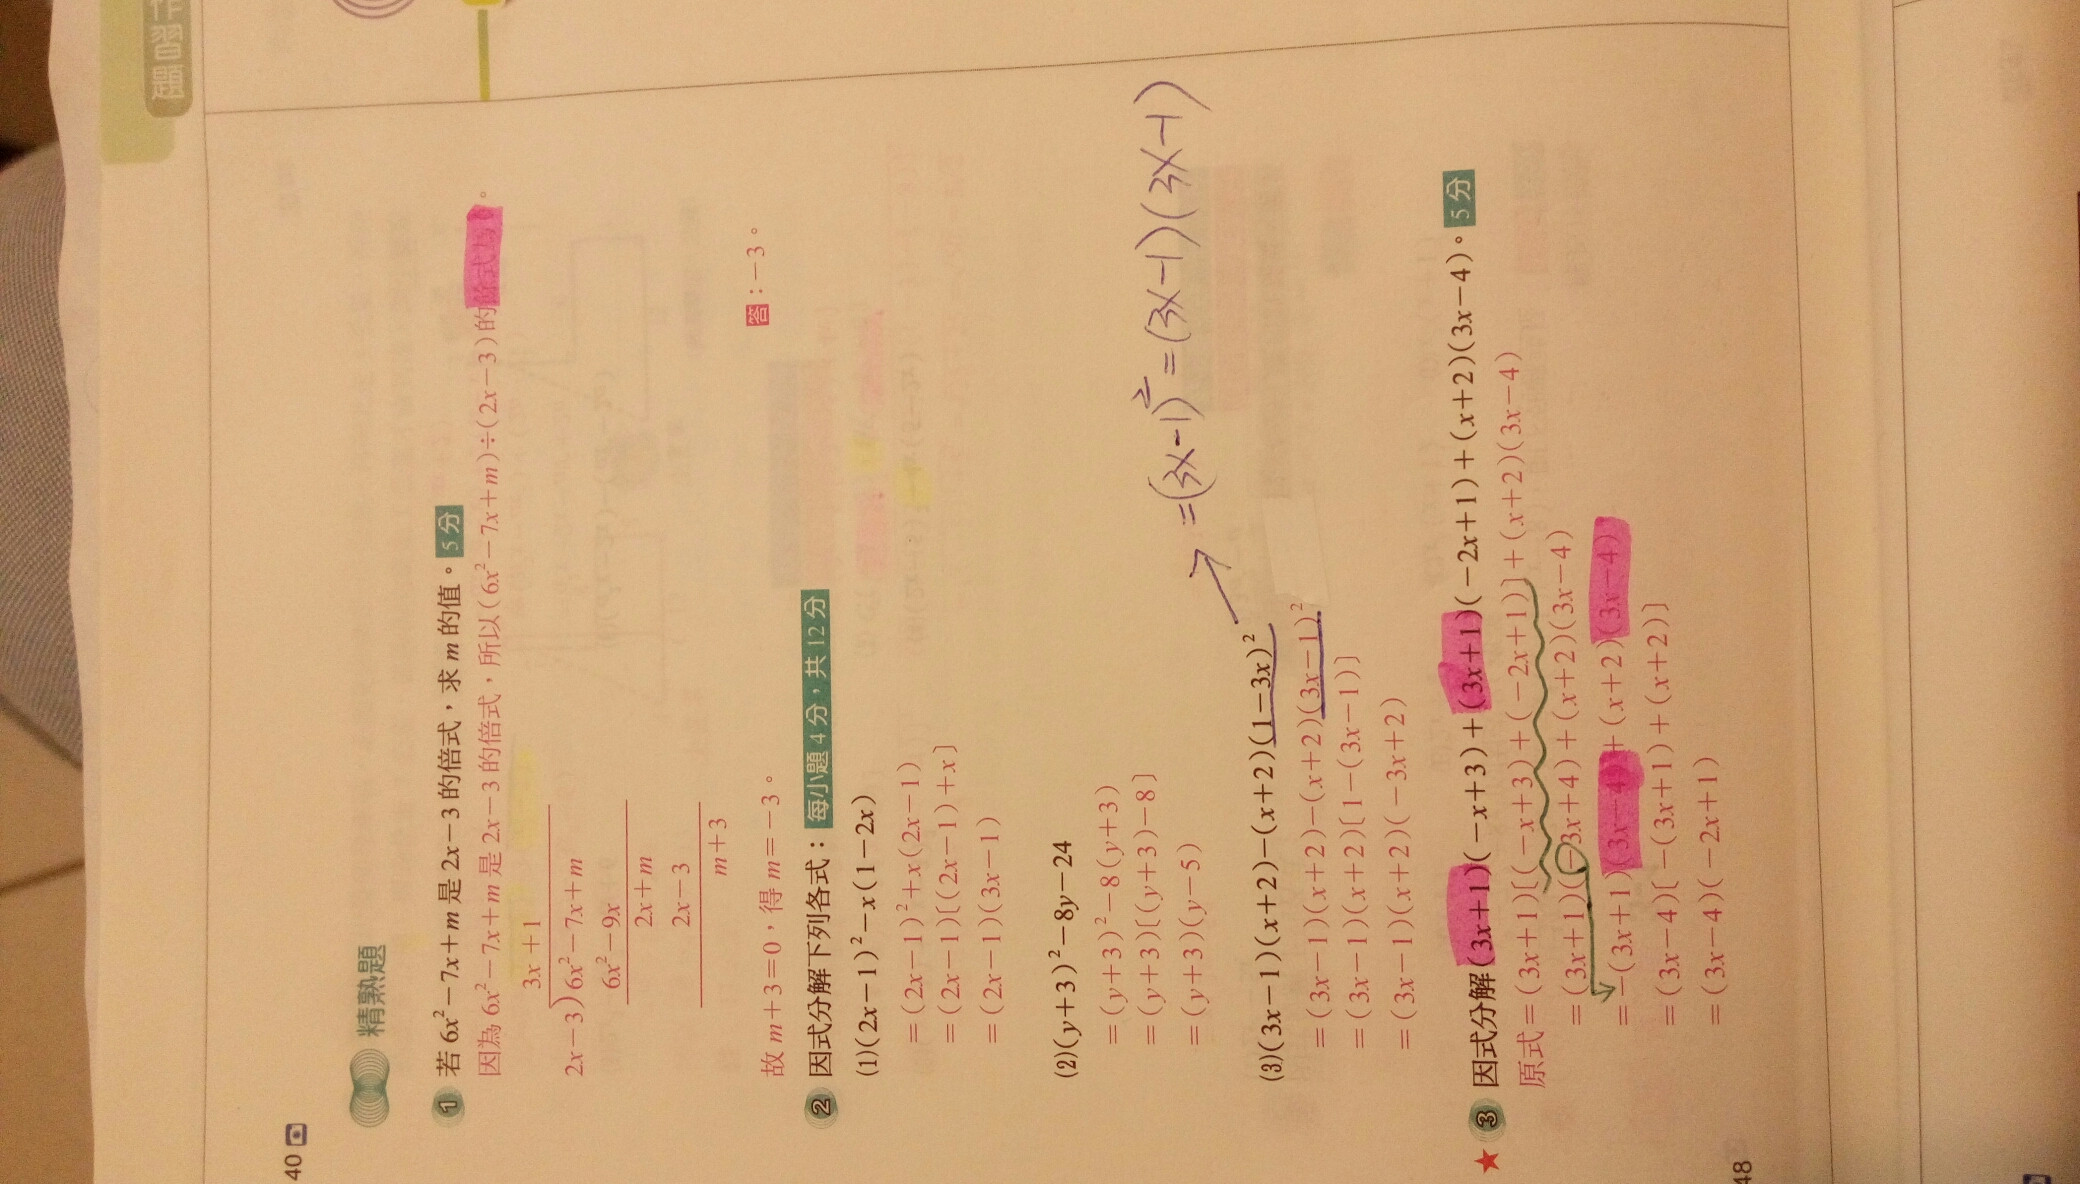 40
精熟題
1 若 6x²－7x＋m 是 2x－3 的倍式，求 m 的值。 5 分
因為 6x²－7x＋m 是 2x－3 的倍式，所以(6x²－7x＋m)÷(2x－3)的
3x＋1
2x－3)6x²－7x＋m
6x²－9x
2x＋m
2x－3
m＋3
故 m＋3＝0，得 m＝－3。
答：－3。
2 因式分解下列各式： 每小題 4 分，共 12 分
(1)(2x－1)²－x(1－2x)
＝(2x－1)²＋x(2x－1)
＝(2x－1)[(2x－1)＋x]
＝(2x－1)(3x－1)
(2)(y＋3)²－8y－24
＝(y＋3)²－8(y＋3)
＝(y＋3)[(y＋3)－8]
＝(y＋3)(y－5)
=(3x-1)²=(3x-1)(3x-1)
(3)(3x－1)(x＋2)－(x＋2)(1－3x)²
＝(3x－1)(x＋2)－(x＋2)(3x－1)²
＝(3x－1)(x＋2)[1－(3x－1)]
＝(3x－1)(x＋2)(－3x＋2)
★ 3 因式分解(3x＋1)(－x＋3)＋(3x＋1)(－2x＋1)＋(x＋2)(3x－4)。 5 分
原式＝(3x＋1)[(－x＋3)＋(－2x＋1)]＋(x＋2)(3x－4)
＝(3x＋1)(－3x＋4)＋(x＋2)(3x－4)
＝－(3x＋1)(3x－4)＋(x＋2)(3x－4)
＝(3x－4)[－(3x＋1)＋(x＋2)]
＝(3x－4)(－2x＋1)
48